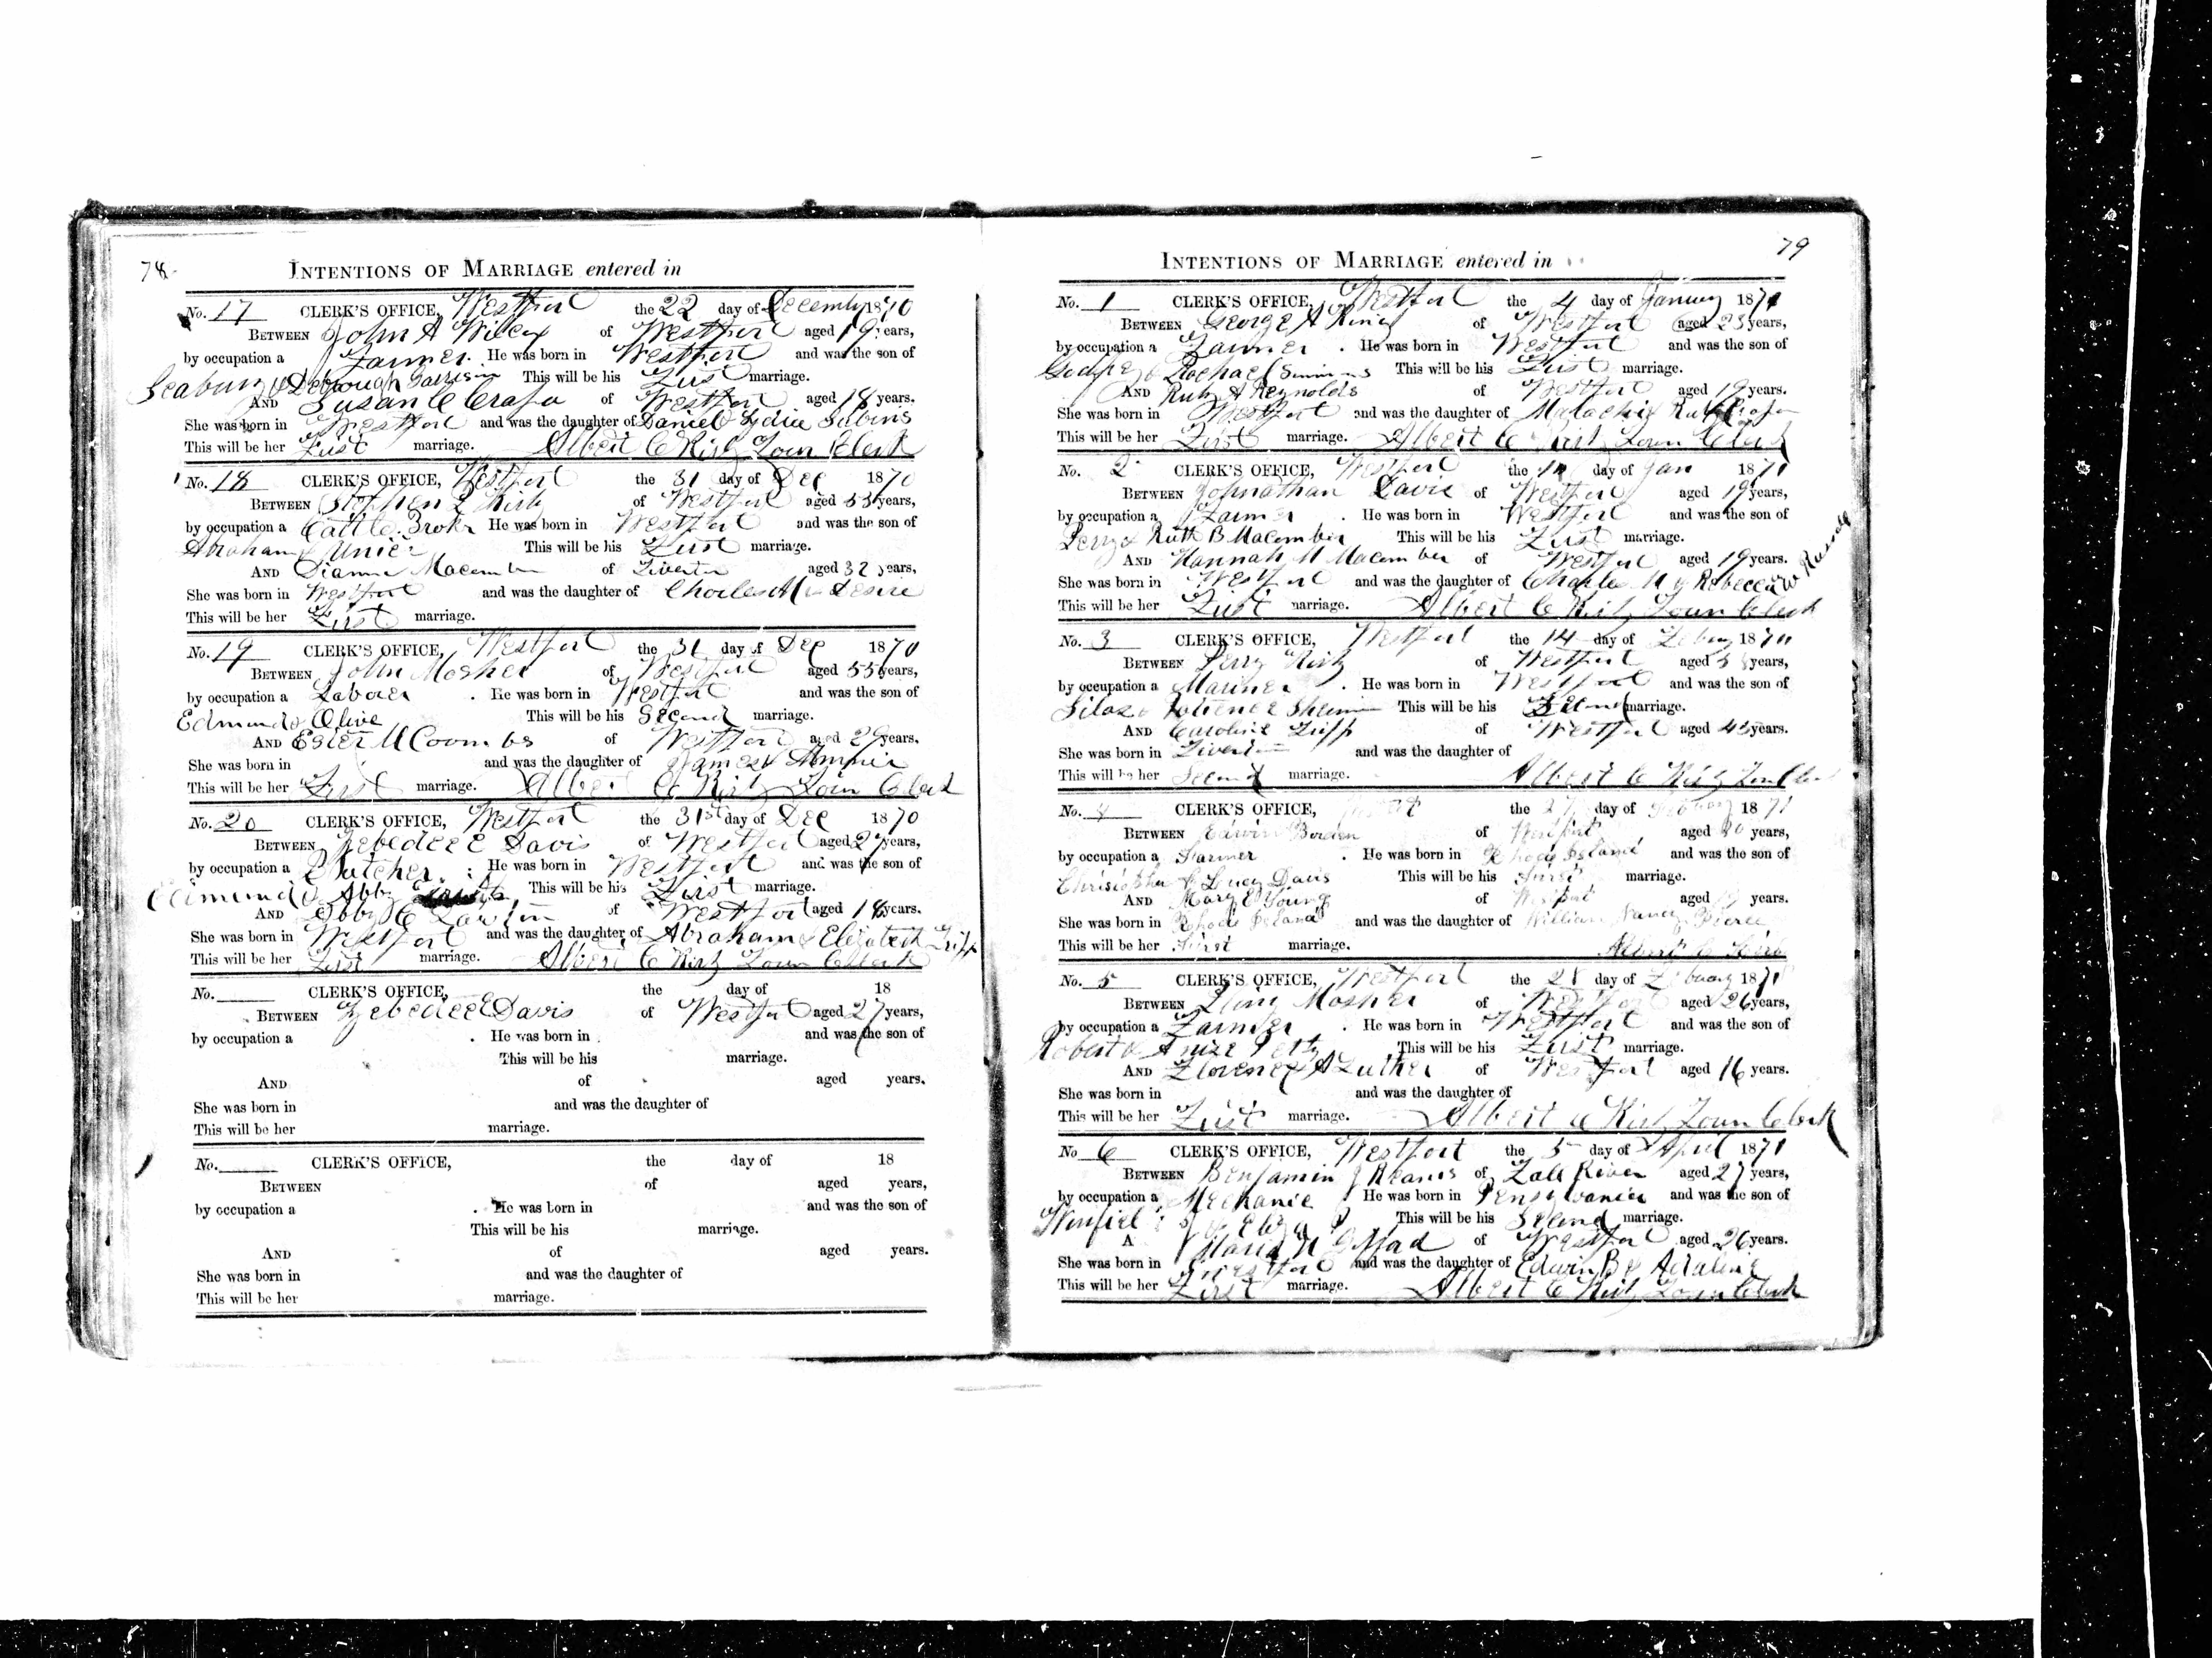 78
INTENTIONS OF MARRIAGE entered in
No. 17 CLERK'S OFFICE, Westport the 22 day of December 1870
BETWEEN John A Wilcox of Westport aged 19 years,
by occupation a Farmer. He was born in Westport and was the son of
Seabury & Deborough This will be his First marriage.
AND Susan C Crapo of Westport aged 18 years.
She was born in Westport and was the daughter of Daniel & Lydia
This will be her First marriage. Albert C Kirby Town Clerk
No. 18 CLERK'S OFFICE, Westport the 31 day of Dec 1870
BETWEEN Stephen Kirby of Westport aged years,
by occupation a Cattle Brokr He was born in Westport and was the son of
Abraham & This will be his First marriage.
AND Macomber of Tiverton aged 32 years,
She was born in Westport and was the daughter of Charles & Desire
This will be her First marriage.
No. 19 CLERK'S OFFICE, Westport the 31 day of Dec 1870
BETWEEN John Mosher of Westport aged 55 years,
by occupation a Laborer . He was born in Westport and was the son of
Edmund & Olive This will be his Second marriage.
AND Ester M Coombs of Westport aged 29 years.
She was born in and was the daughter of James &
This will be her First marriage. Albert C Kirby Town Clerk
No. 20 CLERK'S OFFICE, Westport the 31st day of Dec 1870
BETWEEN Zebedee E Davis of Westport aged 27 years,
by occupation a Butcher. He was born in Westport and was the son of
Edmund & Abby This will be his First marriage.
AND Abby C Lawton of Westport aged 18 years.
She was born in Westport and was the daughter of Abraham & Elizabeth Tripp
This will be her First marriage. Albert C Kirby Town Clerk
No. CLERK'S OFFICE, the day of 18
BETWEEN Zebedee E Davis of Westport aged 27 years,
by occupation a . He was born in and was the son of
This will be his marriage.
AND of aged years.
She was born in and was the daughter of
This will be her marriage.
No. CLERK'S OFFICE, the day of 18
BETWEEN of aged years,
by occupation a . He was born in and was the son of
This will be his marriage.
AND of aged years.
She was born in and was the daughter of
This will be her marriage.
79
INTENTIONS OF MARRIAGE entered in
No. 1 CLERK'S OFFICE, Westport the 4 day of January 1871
BETWEEN George A of Westport aged 23 years,
by occupation a Farmer . He was born in Westport and was the son of
& Rachael This will be his First marriage.
AND Ruby A Reynolds of Westport aged 19 years.
She was born in Westport and was the daughter of Malachi &
This will be her First marriage. Albert C Kirby Town Clerk
No. 2 CLERK'S OFFICE, Westport the day of Jan 1871
BETWEEN Johnathan Davis of Westport aged 19 years,
by occupation a Farmer . He was born in Westport and was the son of
Perry & Ruth B Macomber This will be his First marriage.
AND Hannah M Macomber of Westport aged 19 years.
She was born in Westport and was the daughter of Charles H & Rebecca W Russell
This will be her First marriage. Albert C Kirby Town Clerk
No. 3 CLERK'S OFFICE, Westport the 14 day of 1871
BETWEEN Perry Kirby of Westport aged years,
by occupation a Mariner . He was born in Westport and was the son of
Silas & This will be his Second marriage.
AND Caroline Tripp of Westport aged years.
She was born in Tiverton and was the daughter of
This will be her Second marriage. Albert C Kirby Town Clerk
No. 4 CLERK'S OFFICE, the 27 day of 1871
BETWEEN Edwin Borden of Westport aged years,
by occupation a Farmer . He was born in Rhode Island and was the son of
Christopher & Lucy Davis This will be his First marriage.
AND Mary E Young of Westport aged years.
She was born in Rhode Island and was the daughter of William Nancy Pierce
This will be her First marriage. Albert C Kirby
No. 5 CLERK'S OFFICE, Westport the 28 day of 1871
BETWEEN Mosher of Westport aged 26 years,
by occupation a Farmer . He was born in Westport and was the son of
Robert & This will be his First marriage.
AND Florence A Luther of Westport aged 16 years.
She was born in and was the daughter of
This will be her First marriage. Albert C Kirby Town Clerk
No 6 CLERK'S OFFICE, Westport the 5 day of April 1871
BETWEEN Benjamin J of Fall River aged 27 years,
by occupation a Mechanic He was born in Pensylvania and was the son of
This will be his Second marriage.
Maria H of Westport aged 26 years.
She was born in Westport and was the daughter of Edwin B & Adaline
This will be her First marriage. Albert C Kirby Town Clerk